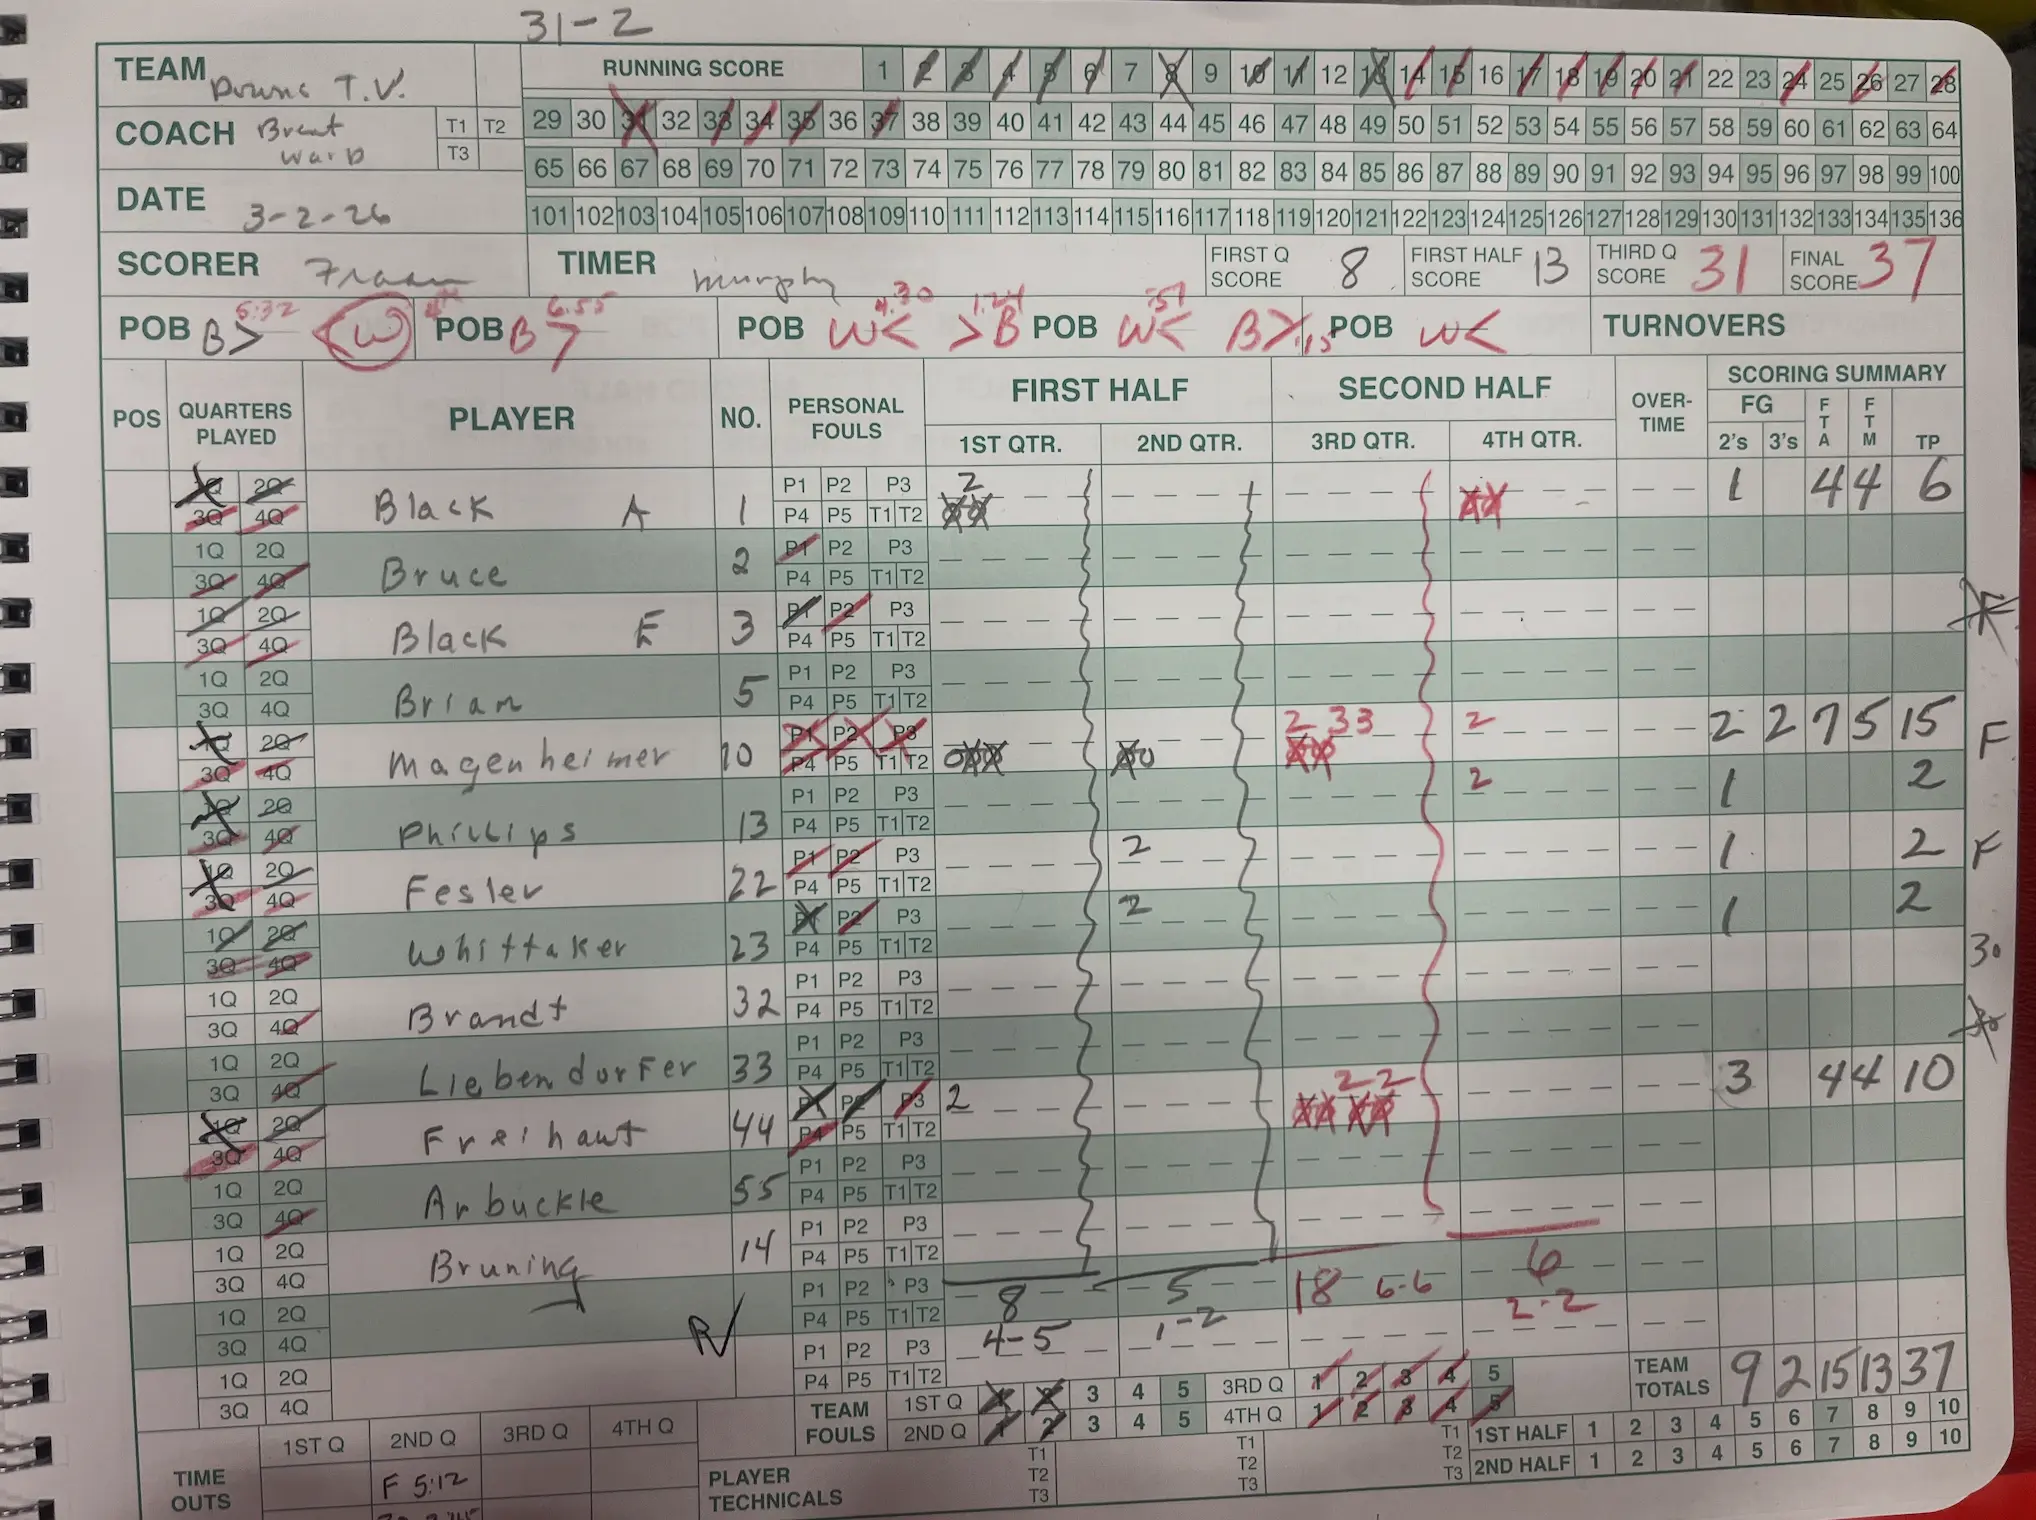 31-2
TEAM Downs T.V.
COACH Brent Ward
T1 T2
T3
DATE 3-2-26
RUNNING SCORE 1 2 3 4 5 6 7 8 9 10 11 12 13 14 15 16 17 18 19 20 21 22 23 24 25 26 27 28
29 30 31 32 33 34 35 36 37 38 39 40 41 42 43 44 45 46 47 48 49 50 51 52 53 54 55 56 57 58 59 60 61 62 63 64
65 66 67 68 69 70 71 72 73 74 75 76 77 78 79 80 81 82 83 84 85 86 87 88 89 90 91 92 93 94 95 96 97 98 99 100
101 102 103 104 105 106 107 108 109 110 111 112 113 114 115 116 117 118 119 120 121 122 123 124 125 126 127 128 129 130 131 132 133 134 135 136
SCORER
TIMER Murphy
FIRST Q SCORE 8
FIRST HALF SCORE 13
THIRD Q SCORE 31
FINAL SCORE 37
POB B> 5:32 <W
POB B> 6:55
POB W< 4:30 >B 1:24
POB W< :57 B> :15
POB W<
TURNOVERS
POS QUARTERS PLAYED PLAYER NO. PERSONAL FOULS FIRST HALF SECOND HALF OVER-TIME SCORING SUMMARY
1ST QTR. 2ND QTR. 3RD QTR. 4TH QTR. FG 2's 3's FTA FTM TP
1Q 2Q 3Q 4Q Black A 1 P1 P2 P3 P4 P5 T1 T2 2 1 4 4 6
1Q 2Q 3Q 4Q Bruce 2 P1 P2 P3 P4 P5 T1 T2
1Q 2Q 3Q 4Q Black E 3 P1 P2 P3 P4 P5 T1 T2 F
1Q 2Q 3Q 4Q Brian 5 P1 P2 P3 P4 P5 T1 T2
1Q 2Q 3Q 4Q Magenheimer 10 P1 P2 P3 P4 P5 T1 T2 2 3 3 2 2 2 7 5 15 F
1Q 2Q 3Q 4Q Phillips 13 P1 P2 P3 P4 P5 T1 T2 2 1 2
1Q 2Q 3Q 4Q Fesler 22 P1 P2 P3 P4 P5 T1 T2 2 1 2 F
1Q 2Q 3Q 4Q Whittaker 23 P1 P2 P3 P4 P5 T1 T2 2 1 2
1Q 2Q 3Q 4Q Brandt 32 P1 P2 P3 P4 P5 T1 T2 30
1Q 2Q 3Q 4Q Liebendorfer 33 P1 P2 P3 P4 P5 T1 T2 30
1Q 2Q 3Q 4Q Freihaut 44 P1 P2 P3 P4 P5 T1 T2 2 2 2 3 4 4 10
1Q 2Q 3Q 4Q Arbuckle 55 P1 P2 P3 P4 P5 T1 T2
1Q 2Q 3Q 4Q Bruning 14 P1 P2 P3 P4 P5 T1 T2
1Q 2Q 3Q 4Q P1 P2 P3 P4 P5 T1 T2 8 5 18 6-6 6
1Q 2Q 3Q 4Q P1 P2 P3 P4 P5 T1 T2 4-5 1-2 2-2
TEAM TOTALS 9 2 15 13 37
TEAM FOULS 1ST Q 1 2 3 4 5 3RD Q 1 2 3 4 5
2ND Q 1 2 3 4 5 4TH Q 1 2 3 4 5
T1 T2 T3 1ST HALF 1 2 3 4 5 6 7 8 9 10
2ND HALF 1 2 3 4 5 6 7 8 9 10
TIME OUTS 1ST Q 2ND Q 3RD Q 4TH Q
F 5:12
PLAYER TECHNICALS T1 T2 T3 T1 T2 T3